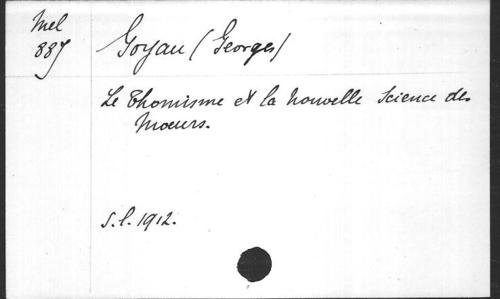 Mel
887
Goyau (Georges)
Le Thomisme et la nouvelle Science des
Moeurs.
s.l. 1912.